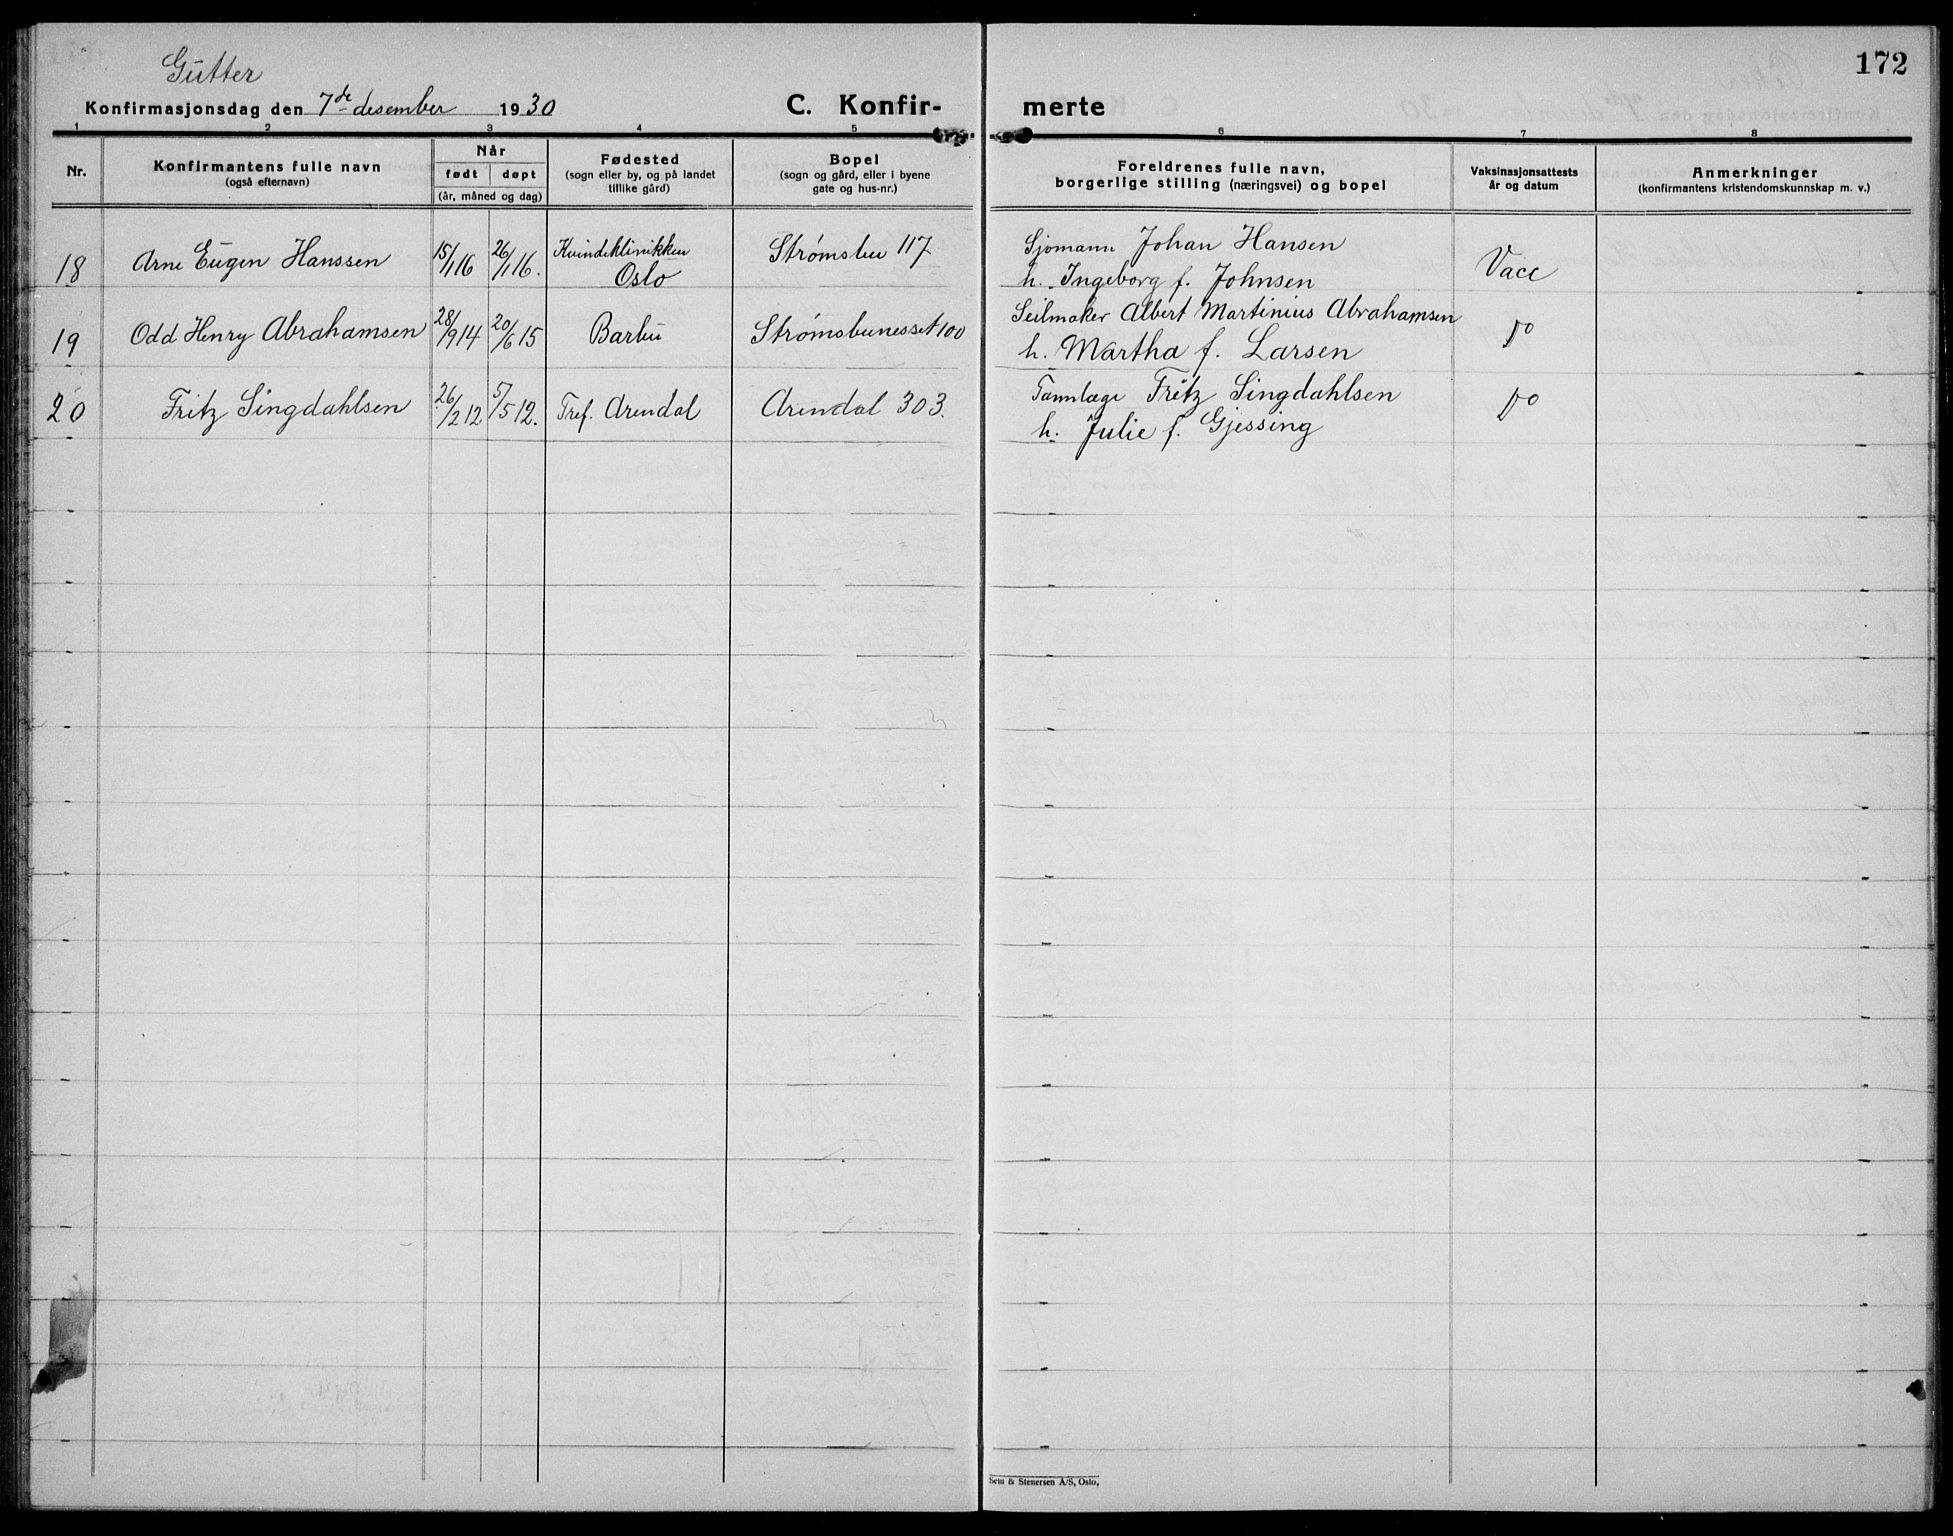 172
Gutter
Konfirmasjonsdag den 7de desember 1930 C. Konfir- merte
1 2 3 4 5 6 7 8
Nr. Konfirmantens fulle navn (også efternavn) Når født døpt (år, måned og dag) Fødested (sogn eller by, og på landet tillike gård) Bopel (sogn og gård, eller i byene gate og hus-nr.) Foreldrenes fulle navn, borgerlige stilling (næringsvei) og bopel Vaksinasjonsattests år og datum Anmerkninger (konfirmantens kristendomskunnskap m. v.)
18 Arne Eugen Hanssen 15/1 16 26/1 16. Kvindeklinikken Oslo Strømsbu 117 Sjømann Johan Hansen
h. Ingeborg f. Johnsen Vacc
19 Odd Henry Abrahamsen 28/9 14 20/6 15 Barbu Strømsbunesset 100 Seilmaker Albert Martinius Abrahamsen
h. Martha f. Larsen do
20 Fritz Singdahlsen 26/2 12 5/5 12. Tref. Arendal Arendal 303. Tannlæge Fritz Singdahlsen
h. Julie f. Gjessing do
Sem & Stenersen A/S, Oslo,